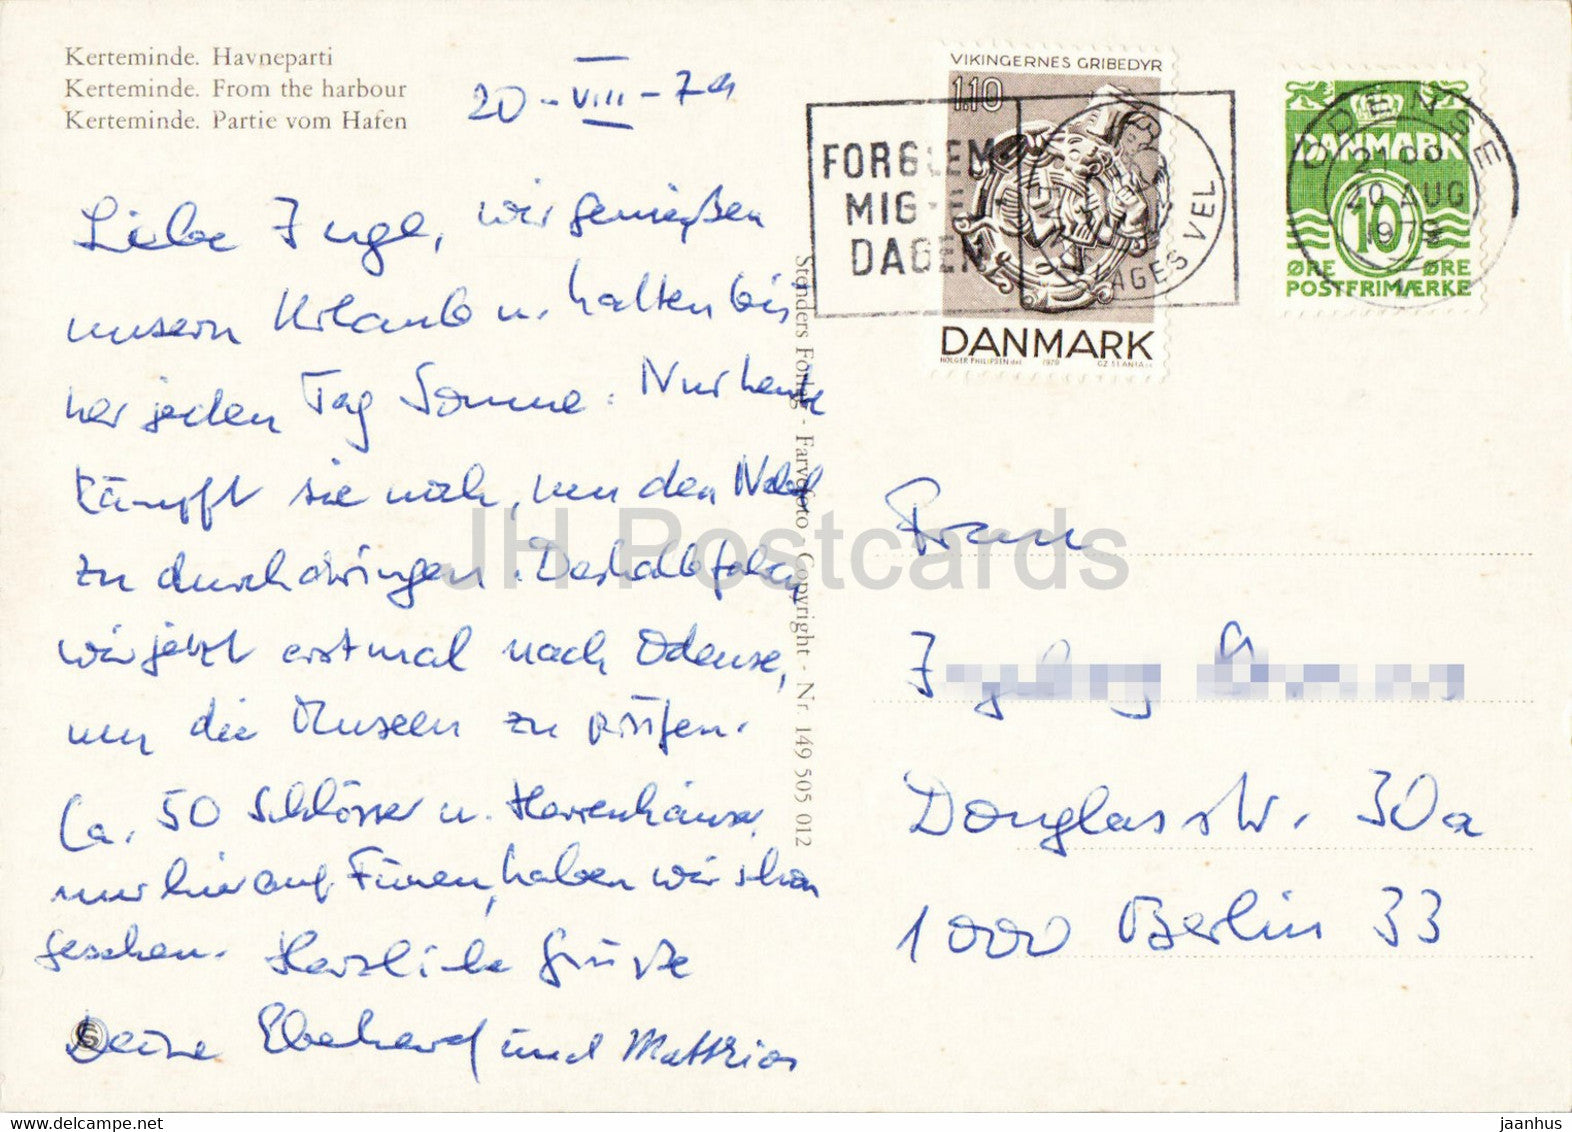 Kerteminde. Havneparti
Kerteminde. From the harbour
Kerteminde. Partie vom Hafen
20-VIII-79
Liebe Inge, wir genießen
unsern Urlaub u. halten bis
her jeden Tag Sonne. Nur heute
kämpft sie noch, um den Nebel
zu durchdringen. Deshalb fahren
wir jetzt erstmal nach Odense,
um die Museen zu prüfen.
Ca. 50 Schlösser u. Herrenhäuser,
nur hier auf Fünen, haben wir schon
gesehen. Herzliche Grüße
Deine Eberhard und Matthias
Stenders Forlag - Farvefoto - Copyright - Nr 149 505 012
VIKINGERNES GRIBEDYR
1.10
DANMARK
HOLGER PHILIPSEN del. 1979 CZ SLANIA sc.
FORGLEM
MIG-E
DAGEN
VEL
DANMARK
10
ØRE ØRE
POSTFRIMÆRKE
ODENSE
2100
20 AUG
1979
Frau
Douglasstr. 30a
1000 Berlin 33
JH Postcards
www.delcampe.net
jaanhus